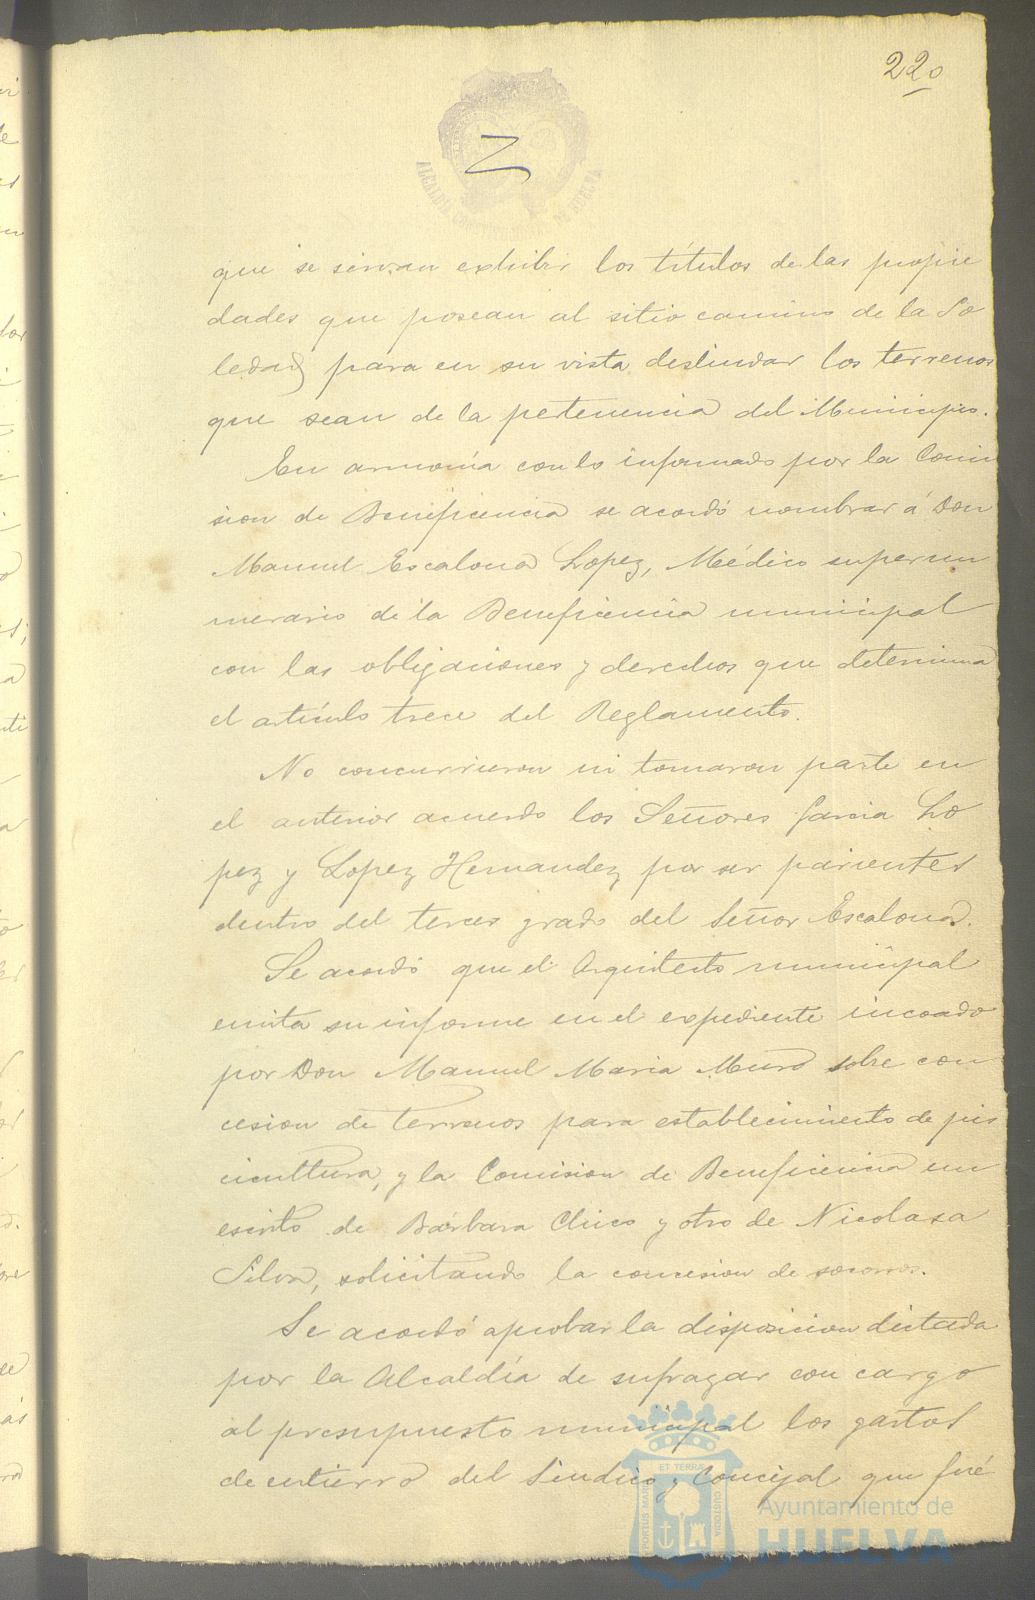 220
que se sirvan exhibir los títulos de las propie
dades que posean al sitio camino de la So
ledad para en su vista deslindar los terrenos
que sean de la pertenencia del Municipio.
En armonía con lo informado por la Comi
sion de Beneficencia se acordó nombrar á Don
Manuel Escalona Lopez, Médico supernu
merario de la Beneficencia municipal
con las obligaciones y derechos que determina
el artículo trece del Reglamento.
No concurrieron ni tomaron parte en
el anterior acuerdo los Señores Garcia Lo
pez y Lopez Hernandez por ser parientes
dentro del tercer grado del Señor Escalona.
Se acordó que el Arquitecto municipal
emita su informe en el expediente incoado
por Don Manuel Maria Muro sobre con
cesion de terrenos para establecimiento de pis
cicultura, y la Comision de Beneficencia en
escrito de Bárbara Chico y otro de Nicolasa
Silva, solicitando la concesion de socorros.
Se acordó aprobar la disposicion dictada
por la Alcaldía de sufragar con cargo
al presupuesto municipal los gastos
de entierro del Sindico y Concejal que fué
PORTUS MARIS ET TERRAE CUSTODIA
Ayuntamiento de
HUELVA